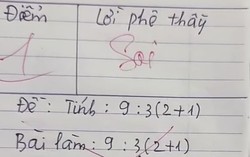 Điểm
Lời phê thầy
1
Sai
Đề : Tính : 9 : 3(2+1)
Bài làm : 9 : 3(2+1)